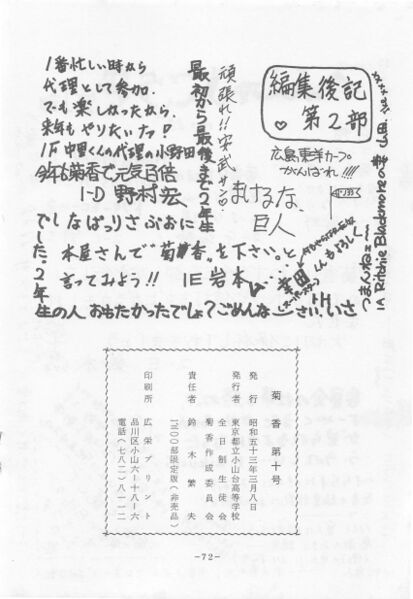 編集後記
第２部
広島東洋カープ
がんばれ!!!!
頑張れ!!安武サン♡
まけるな、
巨人
最初から最後まで２年生
でしなぱっりさぶおに
でした。２年
生の人、おもたかったでしょ？ごめんなさい、いさ
１番忙しい時なら
代理として参加。
でも楽しかったなら、
来年もやりたいナァ！
１F 中里くんの代理の小野田
今年も菊香で元気百倍
1-D 野村宏
本屋さんで“菊香”を下さい。と
言ってみよう!! 1E 岩本
1A Ritchie Blackmoreの
菊香 第十号
発行 昭和五十三年三月八日
発行者 東京都立小山台高等学校
全日制生徒会
菊香作成委員会
責任者 鈴木繁夫
1200部限定版(非売品)
印刷所 広栄プリント
品川区小山六ー十八ー六
電話(七八二)八一一二
-72-